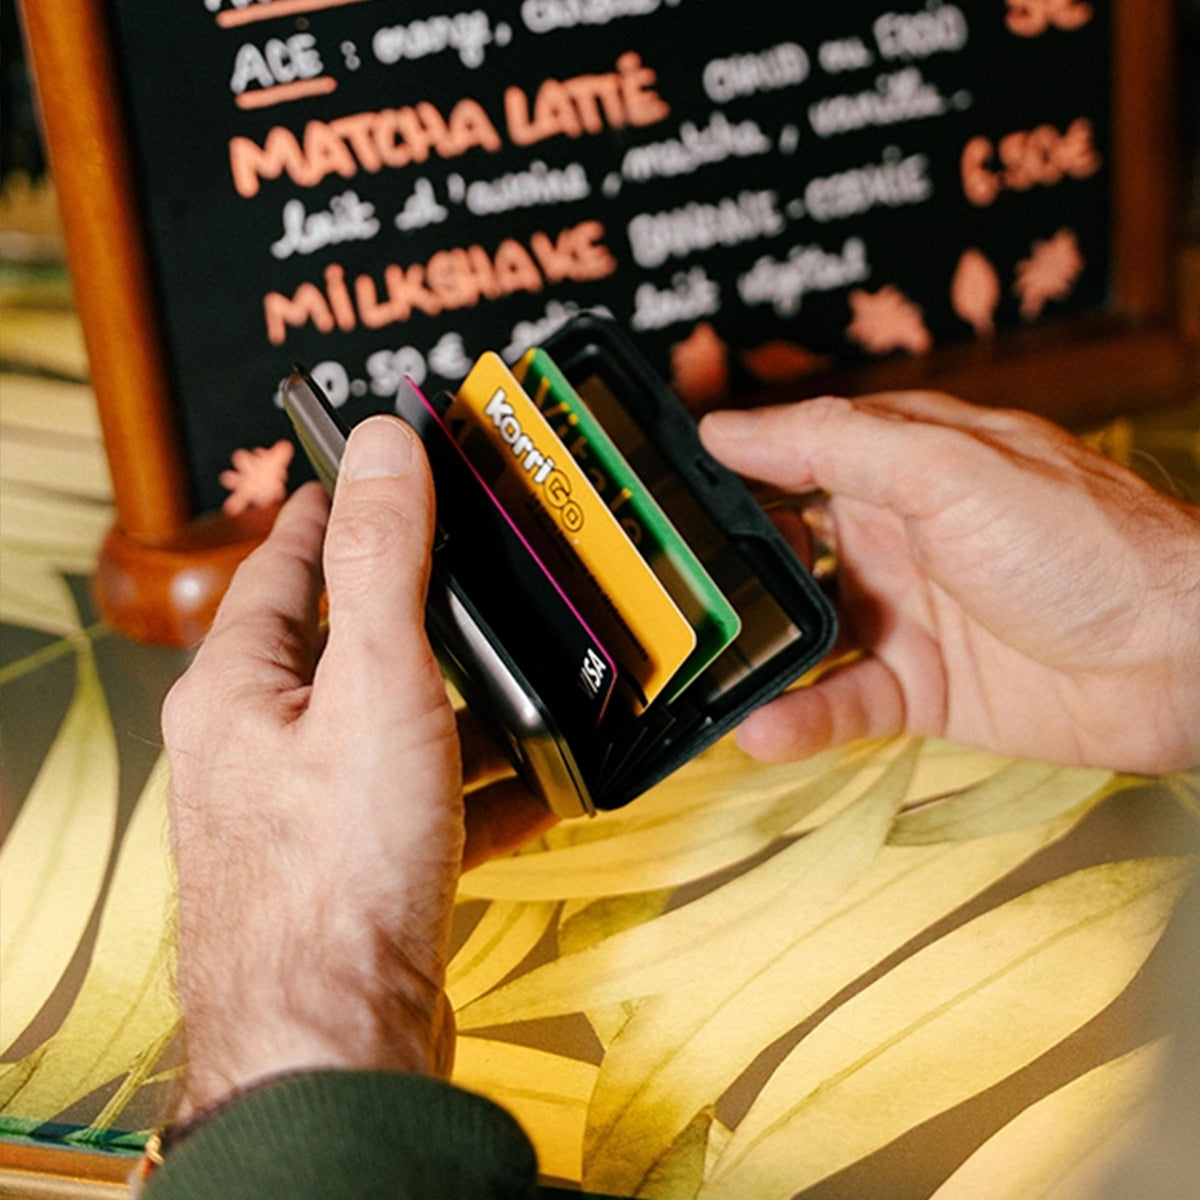 ACE : orange,
5€
MATCHA LATTÉ CHAUD ou FROID
lait d'avoine, matcha, vanille.
6.50€
MILKSHAKE BANANE-COOKIE
0.50€ lait végétal
KorriGo
Vitale
VISA